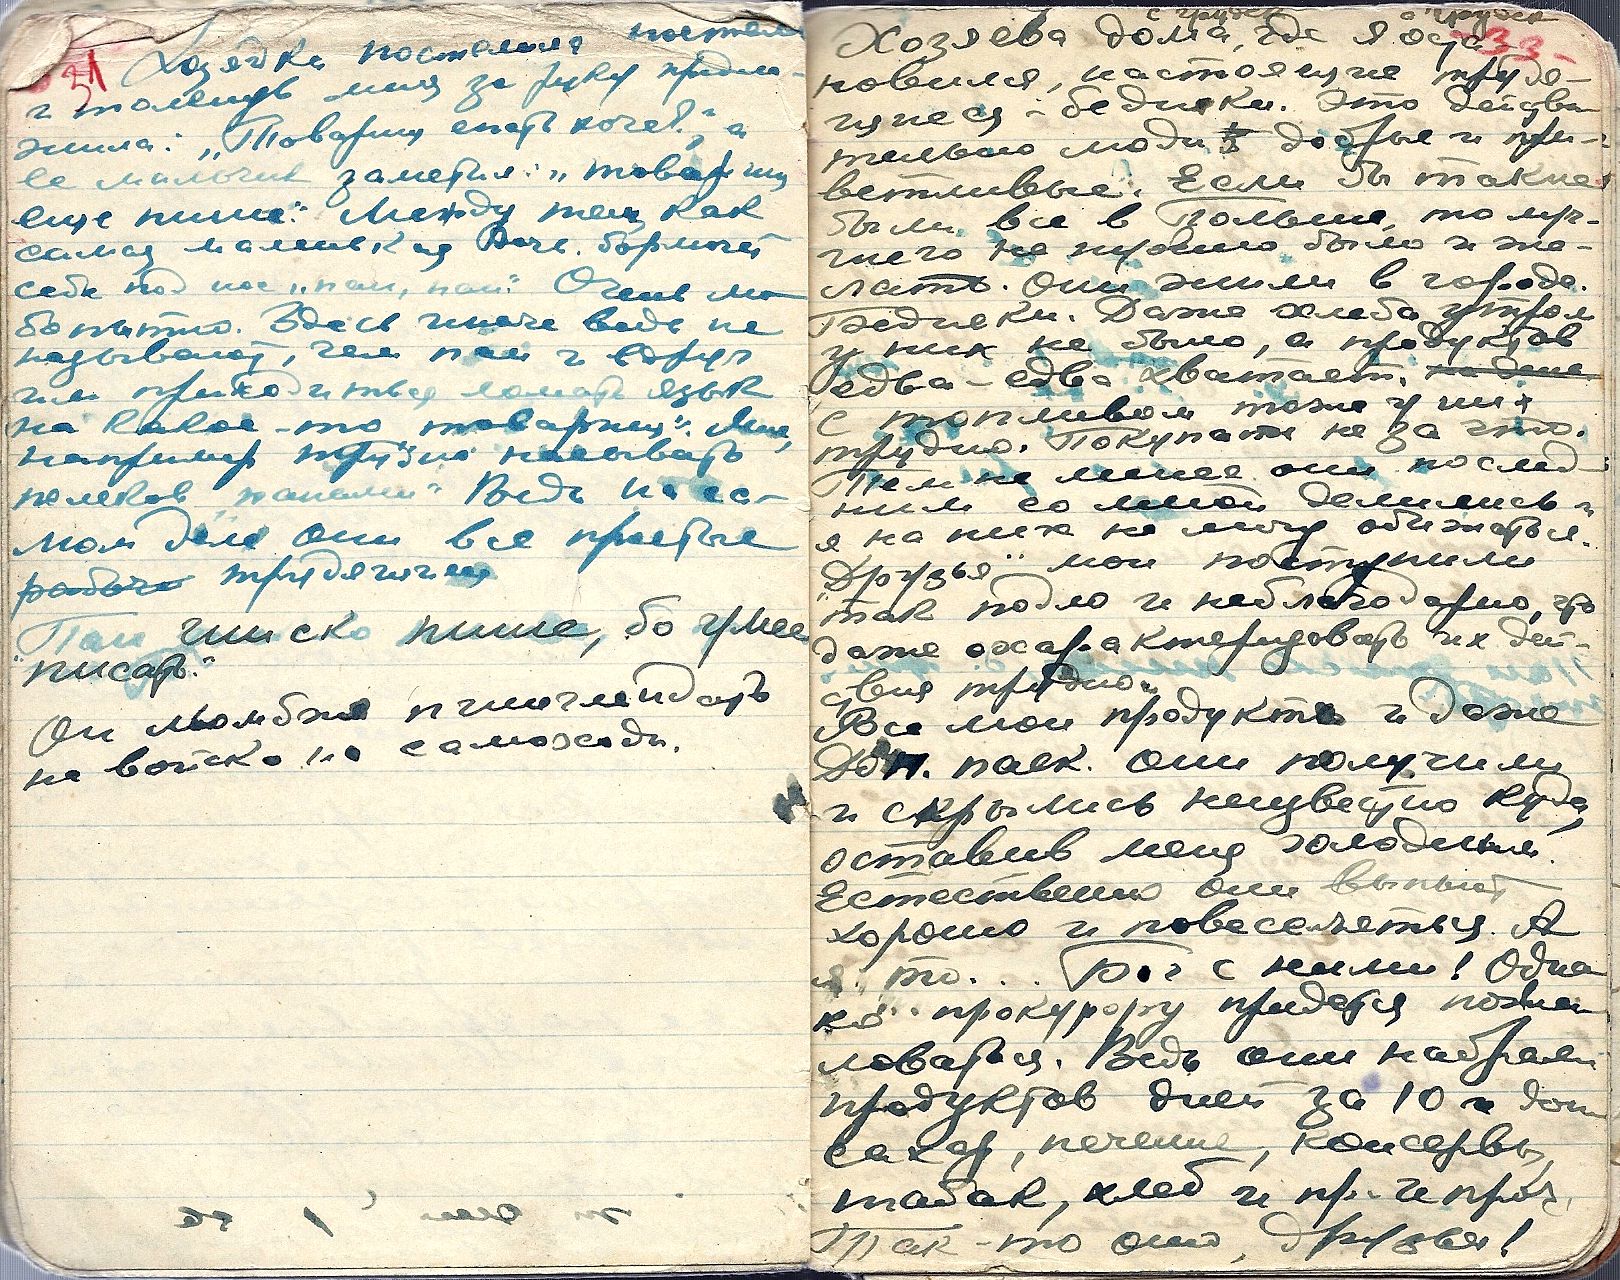 31
Хозяйка постелила постель
и толкнув меня за руку предло-
жила: „Товарищ спать хочет", а
ее мальчик заметил: „товарищ
еще пише". Между тем, как
самая маленькая дочь бормочет
себе под нос „пан, пан". Очень лю-
бопытно. Здесь иначе ведь не
называют, чем пан и вдруг
им приходиться ломать язык
на какое-то „товарищ". Мне,
например трудно называть
поляков „панами". Ведь на са-
мом деле они все простые
рабочие трудящиеся
"Пан чиско пише, бо умее
писать".
Он
на войско и самоходи.
33-
Хозяева дома, где я оста-
новился, настоящие трудя-
щиеся - бедняки. Это действи
тельно люди добрые и при-
ветливые. Если бы такие
были все в Польше, то луч-
шего не нужно было и же-
лать. Они жили в городе.
Бедняки. Даже хлеба утром
у них не было, а продуктов
едва-едва хватает.
С топливом тоже у них
трудно. Покупать не за что.
Тем не менее они послед-
ним со мной делились и
я на них не могу обижаться.
"Друзья" мои поступили
так подло и неблагодарно, что
даже охарактеризовать их дей-
ствия трудно.
Все мои продукты и даже
доп. паек. они получили
и скрылись неизвестно куда,
оставив меня голодным.
Естественно они выпьют
хорошо и повеселяться. А
я то... Бог с ними! Одна
ко прокурору придется пожа
ловаться. Ведь они набрали
продуктов дней за 10 и доп
сахар, печенье, консервы,
табак, хлеб и пр. и проч.
Так-то оно, друзья!